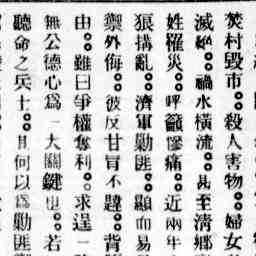 焚村毀市。。殺人害物。。婦女
滅絕。。禍水橫流。。甚至清鄉
姓罹災。。呼籲慘痛。。近兩年
狼搆亂。。濟軍勦匪。。顯而易
禦外侮。。彼反甘冒不韙。。背
由。。雖曰爭權奪利。。求逞一
無公德心爲一大關鍵也。。若
聽命之兵士。。其何以爲勦匪禦